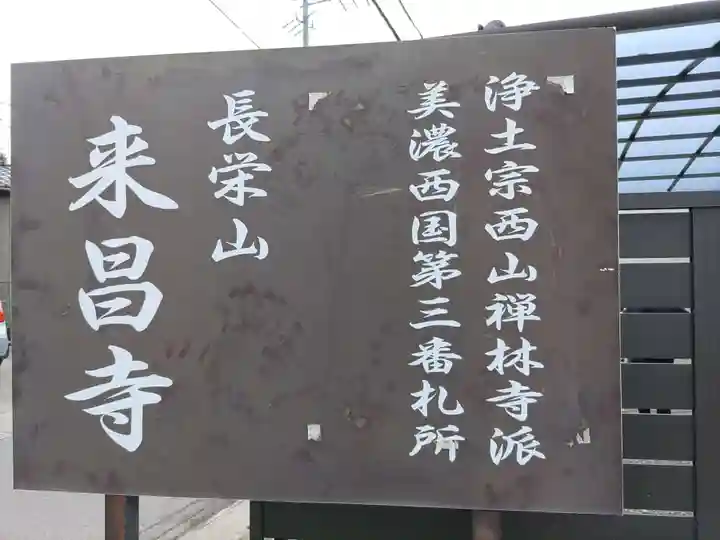 浄土宗西山禅林寺派
美濃西国第三番札所
長栄山
来昌寺